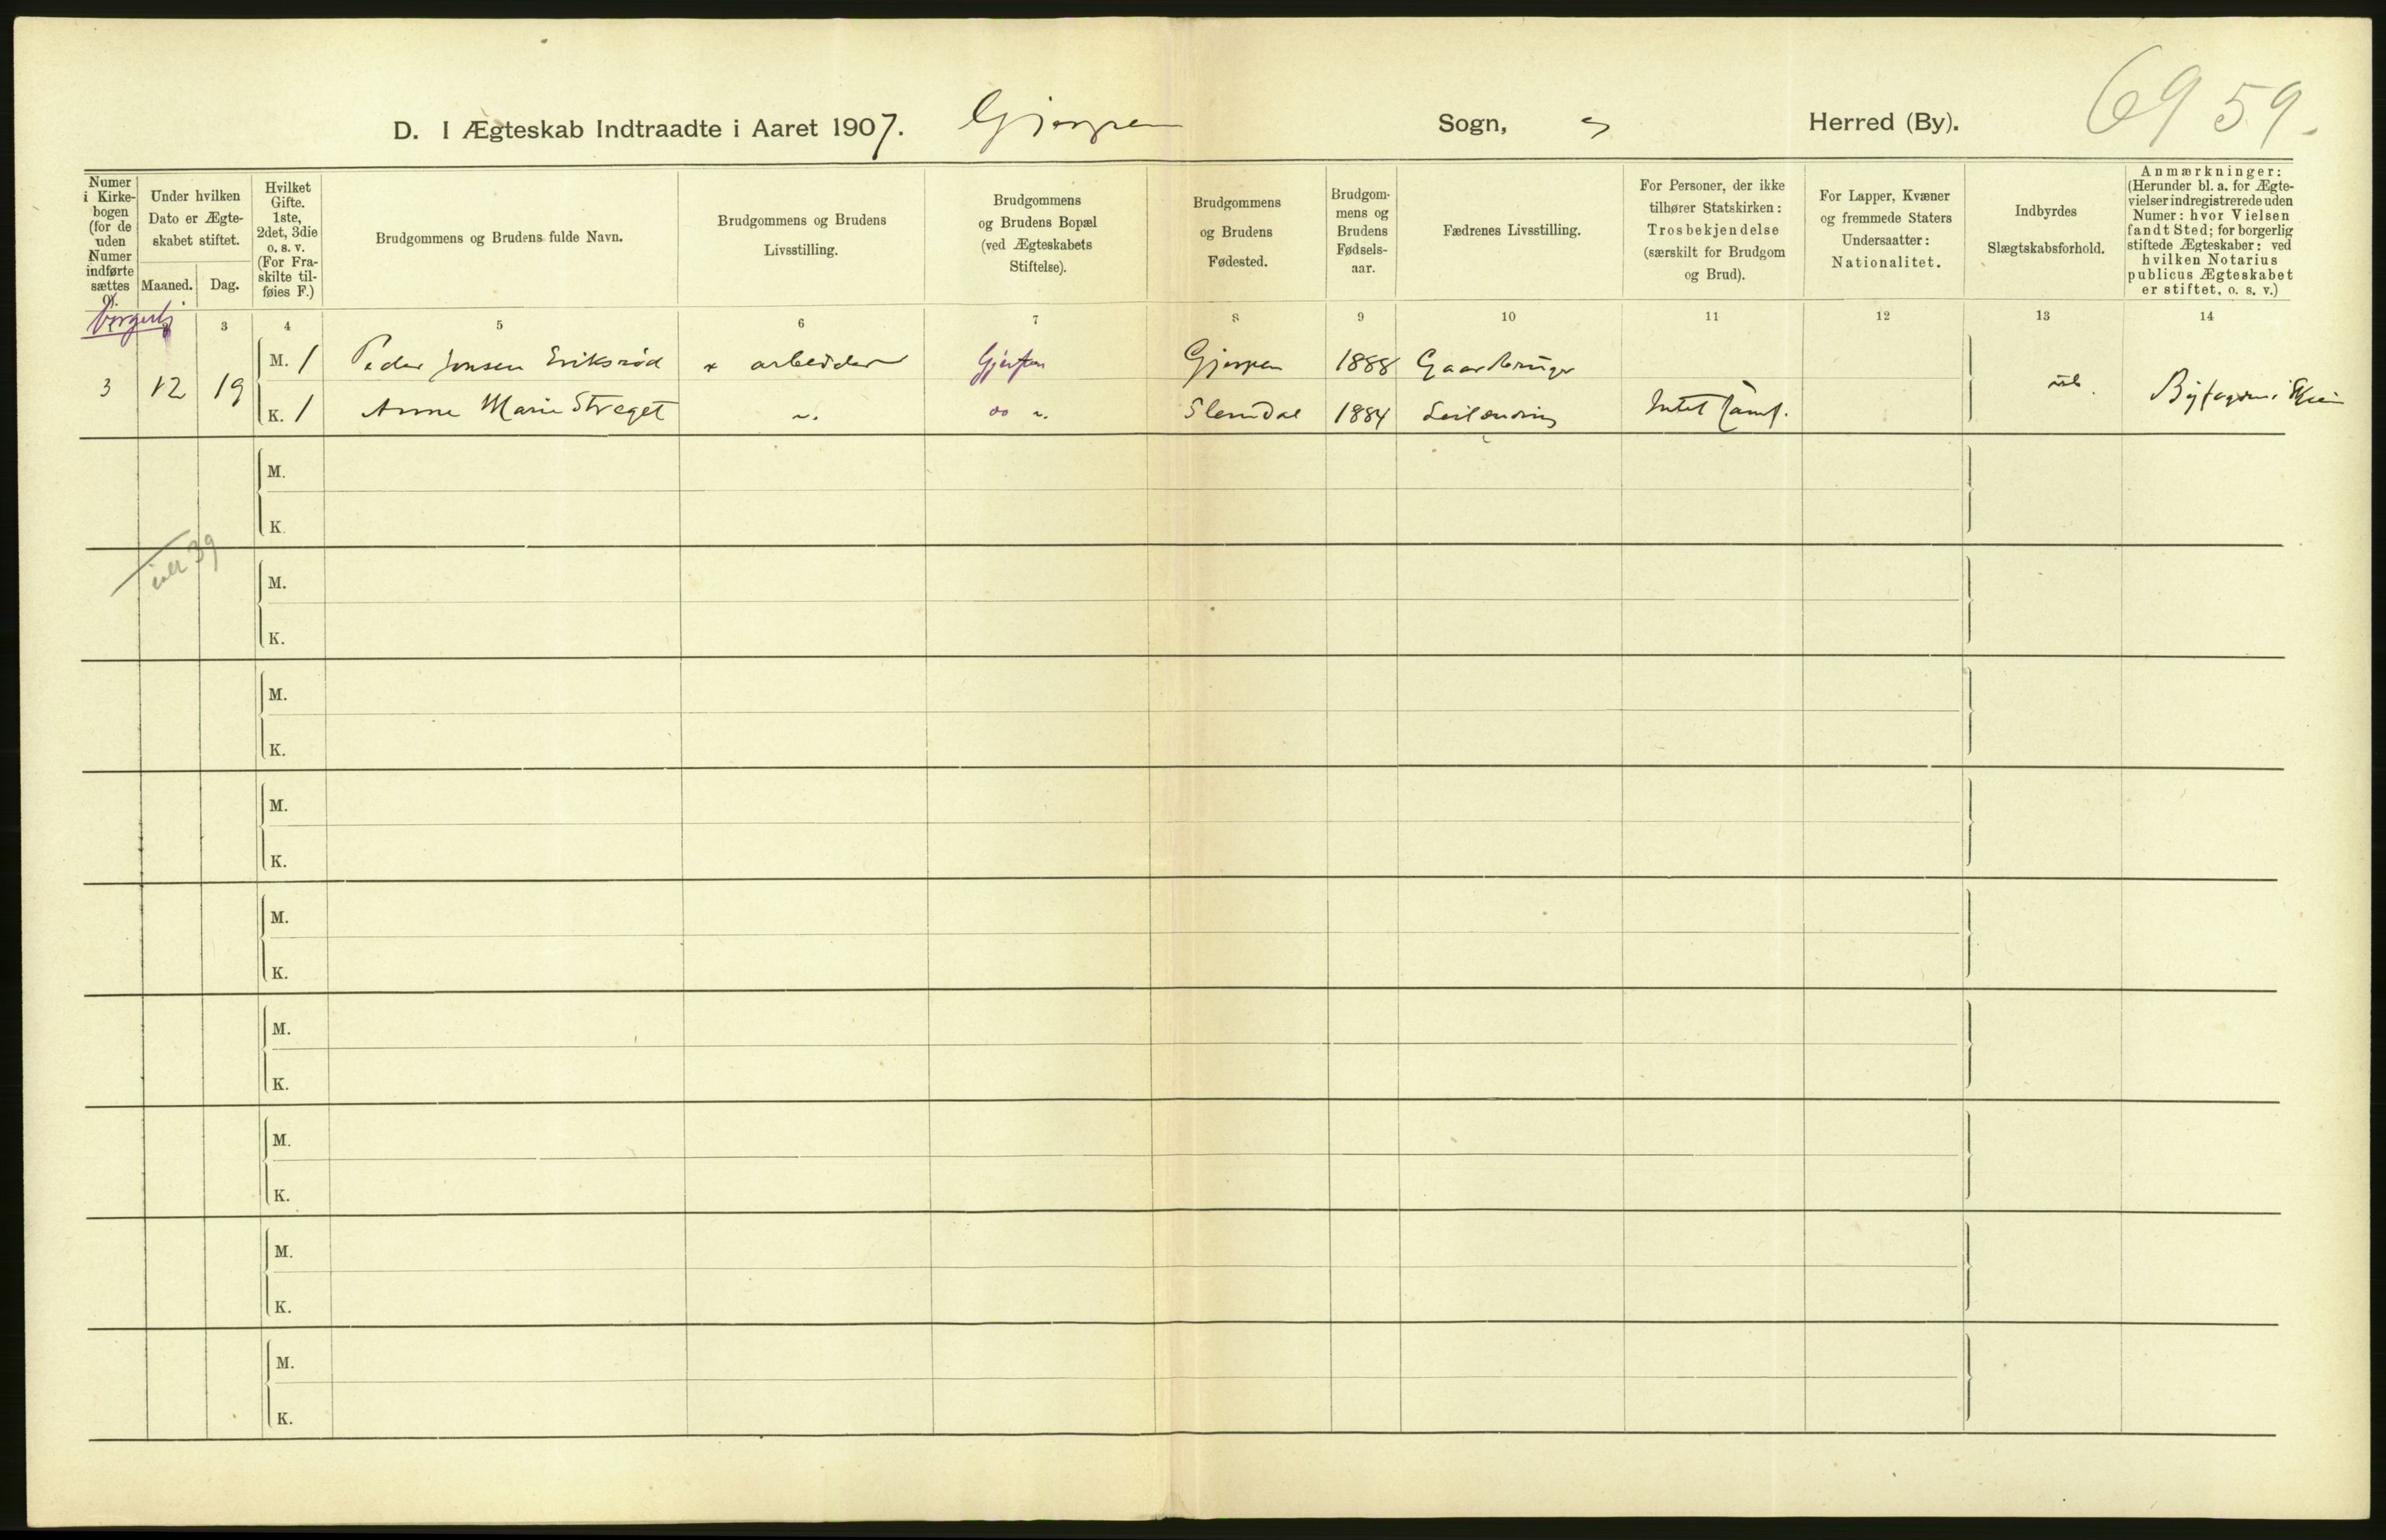 D. I Ægteskab Indtraadte i Aaret 1907. Gjerpen Sogn, Herred (By). 69 59.
Numer i Kirke-bogen (for de uden Numer indførte sættes 0).
Under hvilken Dato er Ægte-skabet stiftet.
Maaned. Dag.
Hvilket Gifte. 1ste, 2det, 3die o. s. v. (For Fra-skilte til-føies F.)
Brudgommens og Brudens fulde Navn.
Brudgommens og Brudens Livsstilling.
Brudgommens og Brudens Bopæl (ved Ægteskabets Stiftelse).
Brudgommens og Brudens Fødested.
Brudgom-mens og Brudens Fødsels-aar.
Fædrenes Livsstilling.
For Personer, der ikke tilhører Statskirken: Trosbekjendelse (særskilt for Brudgom og Brud).
For Lapper, Kvæner og fremmede Staters Undersaatter: Nationalitet.
Indbyrdes Slægtskabsforhold.
Anmærkninger: (Herunder bl. a. for Ægte-vielser indregistrerede uden Numer: hvor Vielsen fandt Sted; for borgerlig stiftede Ægteskaber: ved hvilken Notarius publicus Ægteskabet er stiftet, o. s. v.)
Borgerlig
3 4 5 6 7 8 9 10 11 12 13 14
M. 1 Peder Jonsen Eriksrød arbeider Gjerpen Gjerpen 1888 Gaardbruger
3 12 19
K. 1 Anne Marie Strøget Slemdal 1884 Leilænding Intet samf.
Byfogden i Skien
M.
K.
39
M.
K.
M.
K.
M.
K.
M.
K.
M.
K.
M.
K.
M.
K.
M.
K.